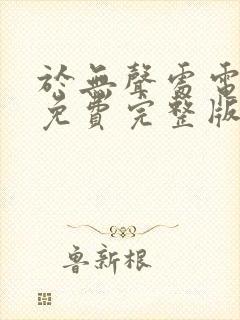 於無聲處電
免費完整版
魯新根